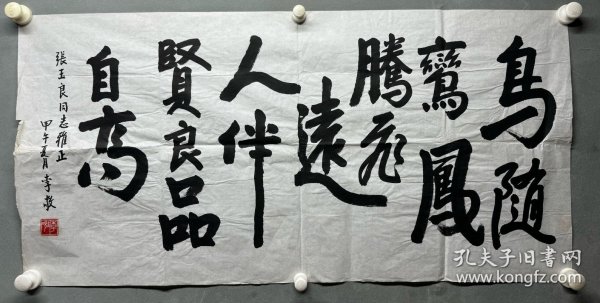 鳥随
鸞鳳
騰飛
遠
人伴
賢良品
自高
張玉良同志雅正
甲午夏月李敖
孔夫子旧书网
www.kongfz.com